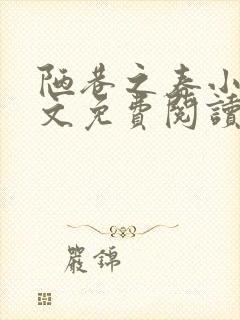 陋巷之春小
文免費閱讀
嚴錦